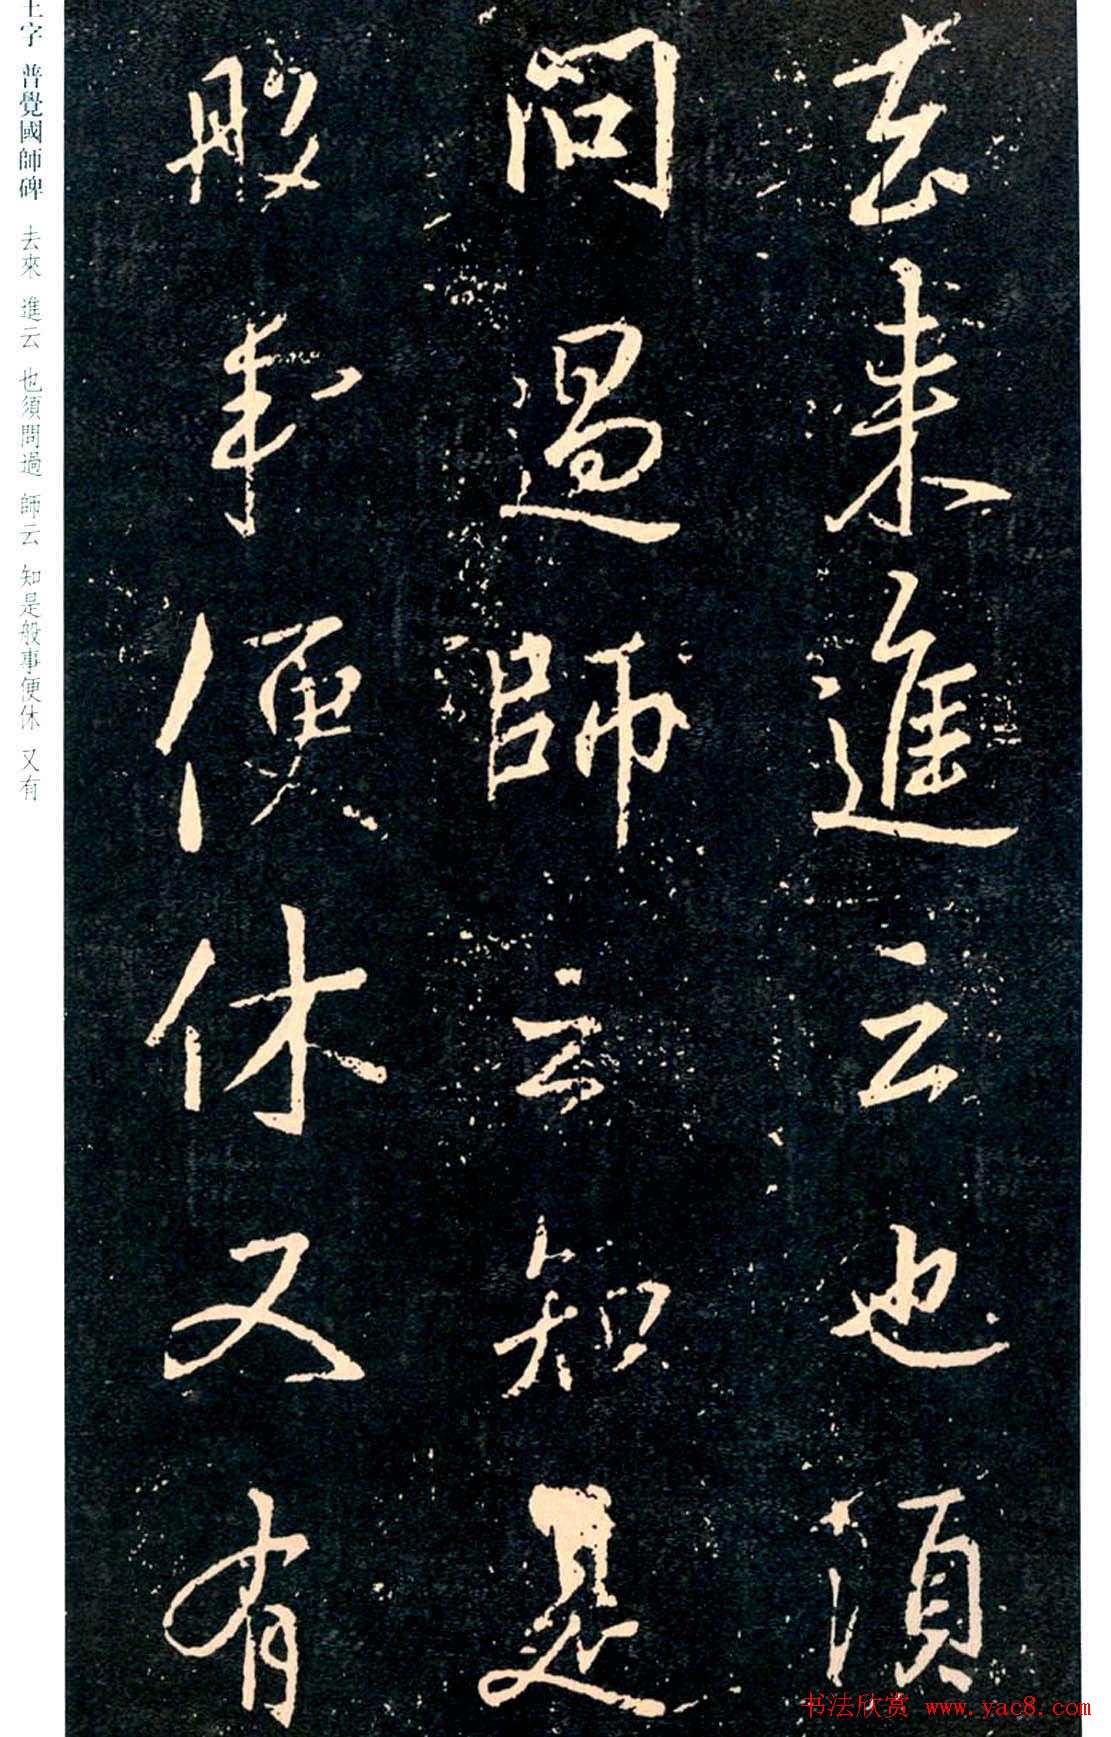 去来進云也須
問過師云知是
般事便休又有
王字 普覺國師碑 去來 進云 也須問過 師云 知是般事便休 又有
书法欣赏 www.yac8.com